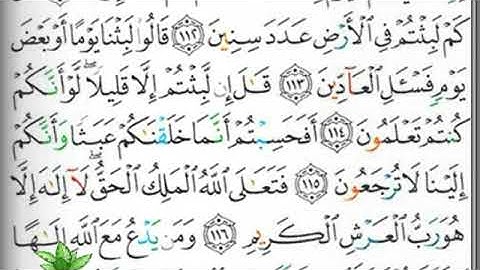 كَمْ لَبِثْتُمْ فِي ٱلْأَرْضِ عَدَدَ سِنِينَ ١١٢ قَالُوا۟ لَبِثْنَا يَوْمًا أَوْ بَعْضَ
يَوْمٍ فَسْـَٔلِ ٱلْعَآدِّينَ ١١٣ قَـٰلَ إِن لَّبِثْتُمْ إِلَّا قَلِيلًا ۖ لَّوْ أَنَّكُمْ
كُنتُمْ تَعْلَمُونَ ١١٤ أَفَحَسِبْتُمْ أَنَّمَا خَلَقْنَـٰكُمْ عَبَثًا وَأَنَّكُمْ
إِلَيْنَا لَا تُرْجَعُونَ ١١٥ فَتَعَـٰلَى ٱللَّهُ ٱلْمَلِكُ ٱلْحَقُّ ۖ لَآ إِلَـٰهَ إِلَّا
هُوَ رَبُّ ٱلْعَرْشِ ٱلْكَرِيمِ ١١٦ وَمَن يَدْعُ مَعَ ٱللَّهِ إِلَـٰهًا